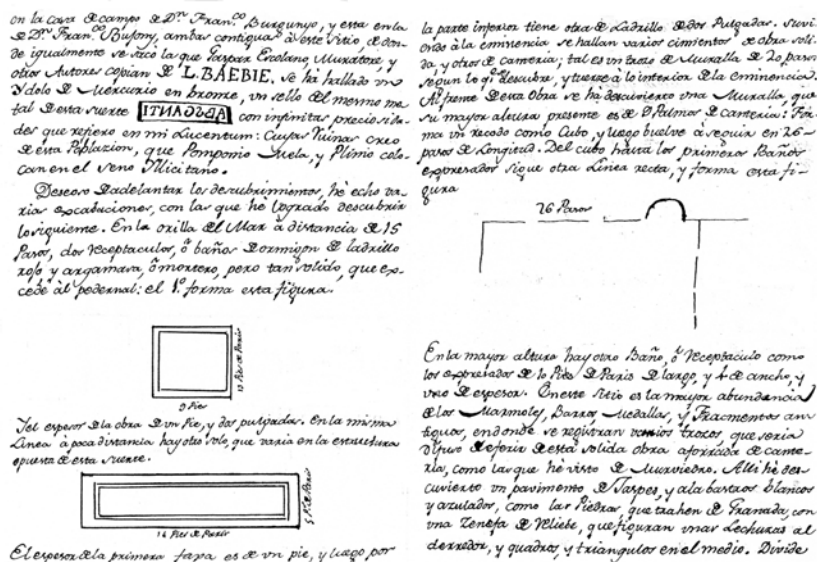 en la Casa de campo de D.ⁿ Fran.ᶜᵒ Burgunyo, y esta en la
de D.ⁿ Fran.ᶜᵒ Busony, ambas contiguas à este sitio, de don-
de igualmente se sacò la que Gaspar Escolano, Muratore, y
otros Autores copian de L. BAEBIE. Se ha hallado un
Ydolo de Mercurio en bronze, un sello del mesmo me
tal de esta suerte con infinitas preciosida-
des que refiero en mi Lucentum: Cuyas Ruinas creo
de esta Poblazion, que Pomponio Mela, y Plinio colo-
can en el seno Illicitano.
Deseoso de adelantar los descubrimientos, hè echo va-
rias excabaciones, con las que hè logrado descubrir
lo siguiente. En la orilla del Mar à distancia de 15
Pasos, dos Receptaculos, ò baños de ormigon de ladrillo
rojo y argamasa, ò mortero, pero tan solido, que ex-
cede àl pedernal: el 1.º forma esta figura.
9 Pies
Y el espesor de la obra de un Pie, y dos pulgadas. En la misma
Linea à poca distancia hay otro solo, que varia en la estructura
opuesta de esta suerte.
14 Pies de Paris
El espesor de la primera faxa es de un pie, y luego por
la parte inferior tiene otra de Ladrillo de dos Pulgadas. Suvi
endo à la eminencia se hallan varios cimientos de obra soli-
da, y otros de canteria; tal es un trozo de Muralla de 20 pasos
segun lo q.ᵉ descubre, y tuerze à lo interior de la eminencia.
Al frente de esta Obra se hà descuvierto una Muralla, que
su mayor altura presente es de 9 Palmos de canteria: For
ma un recodo como Cubo, y luego buelve à seguir en 26-
pasos de Longitud. Del cubo hasta los primeros Baños
expresados sigue otra Linea recta, y forma esta fi-
gura
26 Pasos
En la mayor altura hay otro Baño, ò Receptaculo como
los expresados de 10 Pies de Paris de largo, y 4 de ancho, y
uno de espesor. En este sitio es la mayor abundancia
de los Marmoles, Barros, Medallas, y Fracmentos an
tiguos, en donde se registran varios trozos, que seria
difuso de referir de està solida obra aforrada de cante-
ria, como las que hè visto de Murviedro. Alli hè des-
cuvierto un pavimento de Jaspes, y alabastros blancos
y azulados, como las Piedras, que trahen de Granada, con
una Zenefa de Relieve, que figuran unas Lechuzas al
derredor, y quadros, y triangulos en el medio. Divide